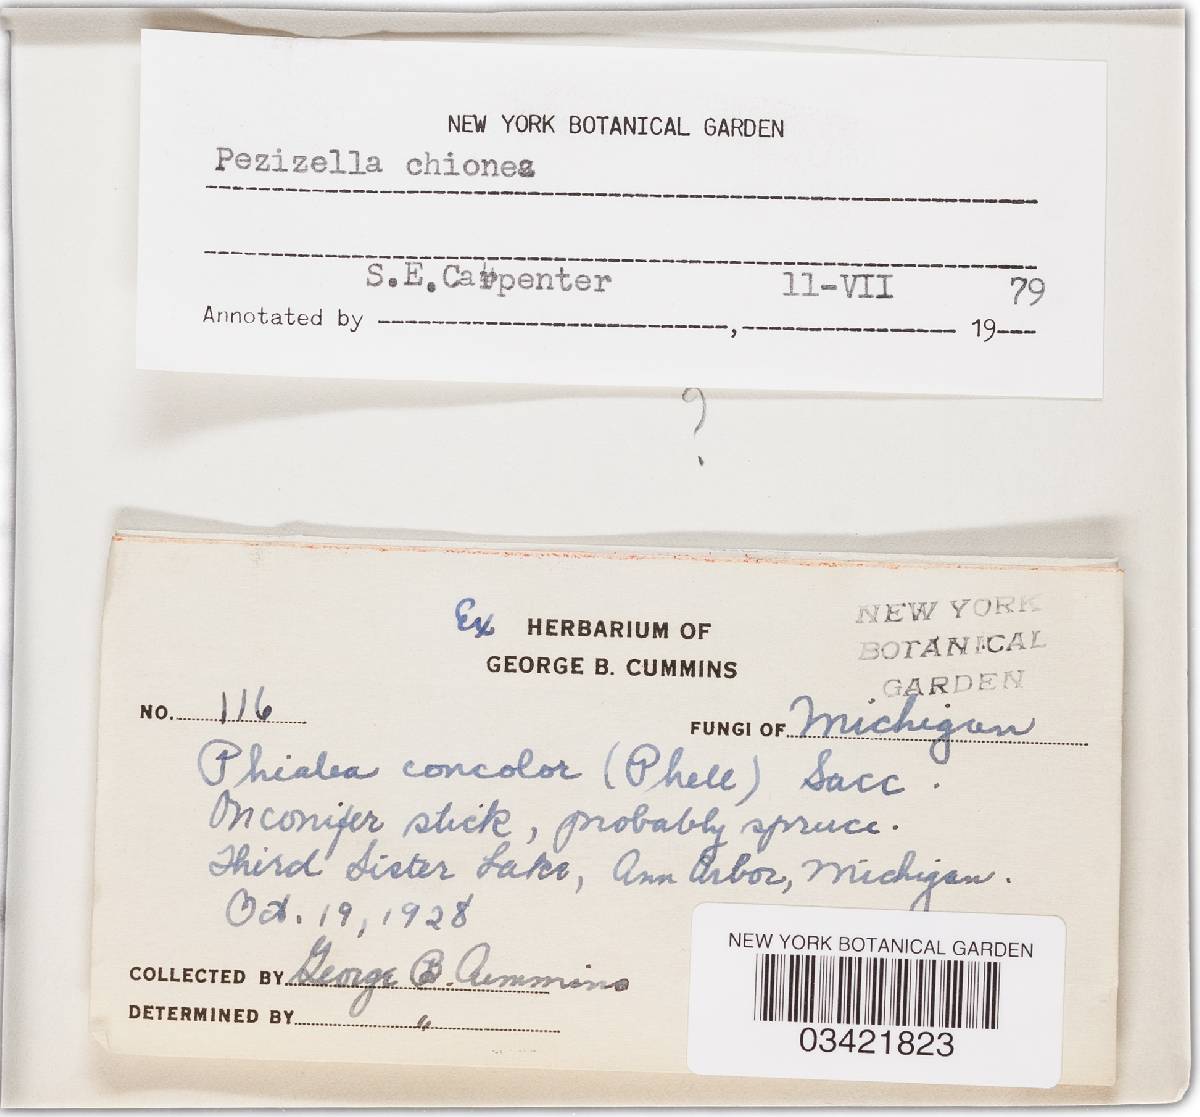 NEW YORK BOTANICAL GARDEN
Pezizella chionea
S.E.Carpenter 11-VII 79
Annotated by , 19
?
Ex HERBARIUM OF
GEORGE B. CUMMINS
NEW YORK
BOTANICAL
GARDEN
NO. 116
FUNGI OF Michigan
Phialea concolor (Phell) Sacc.
On conifer stick, probably spruce.
Third Sister Lake, Ann Arbor, Michigan.
Oct. 19, 1928
COLLECTED BY George B. Cummins
DETERMINED BY "
NEW YORK BOTANICAL GARDEN
03421823